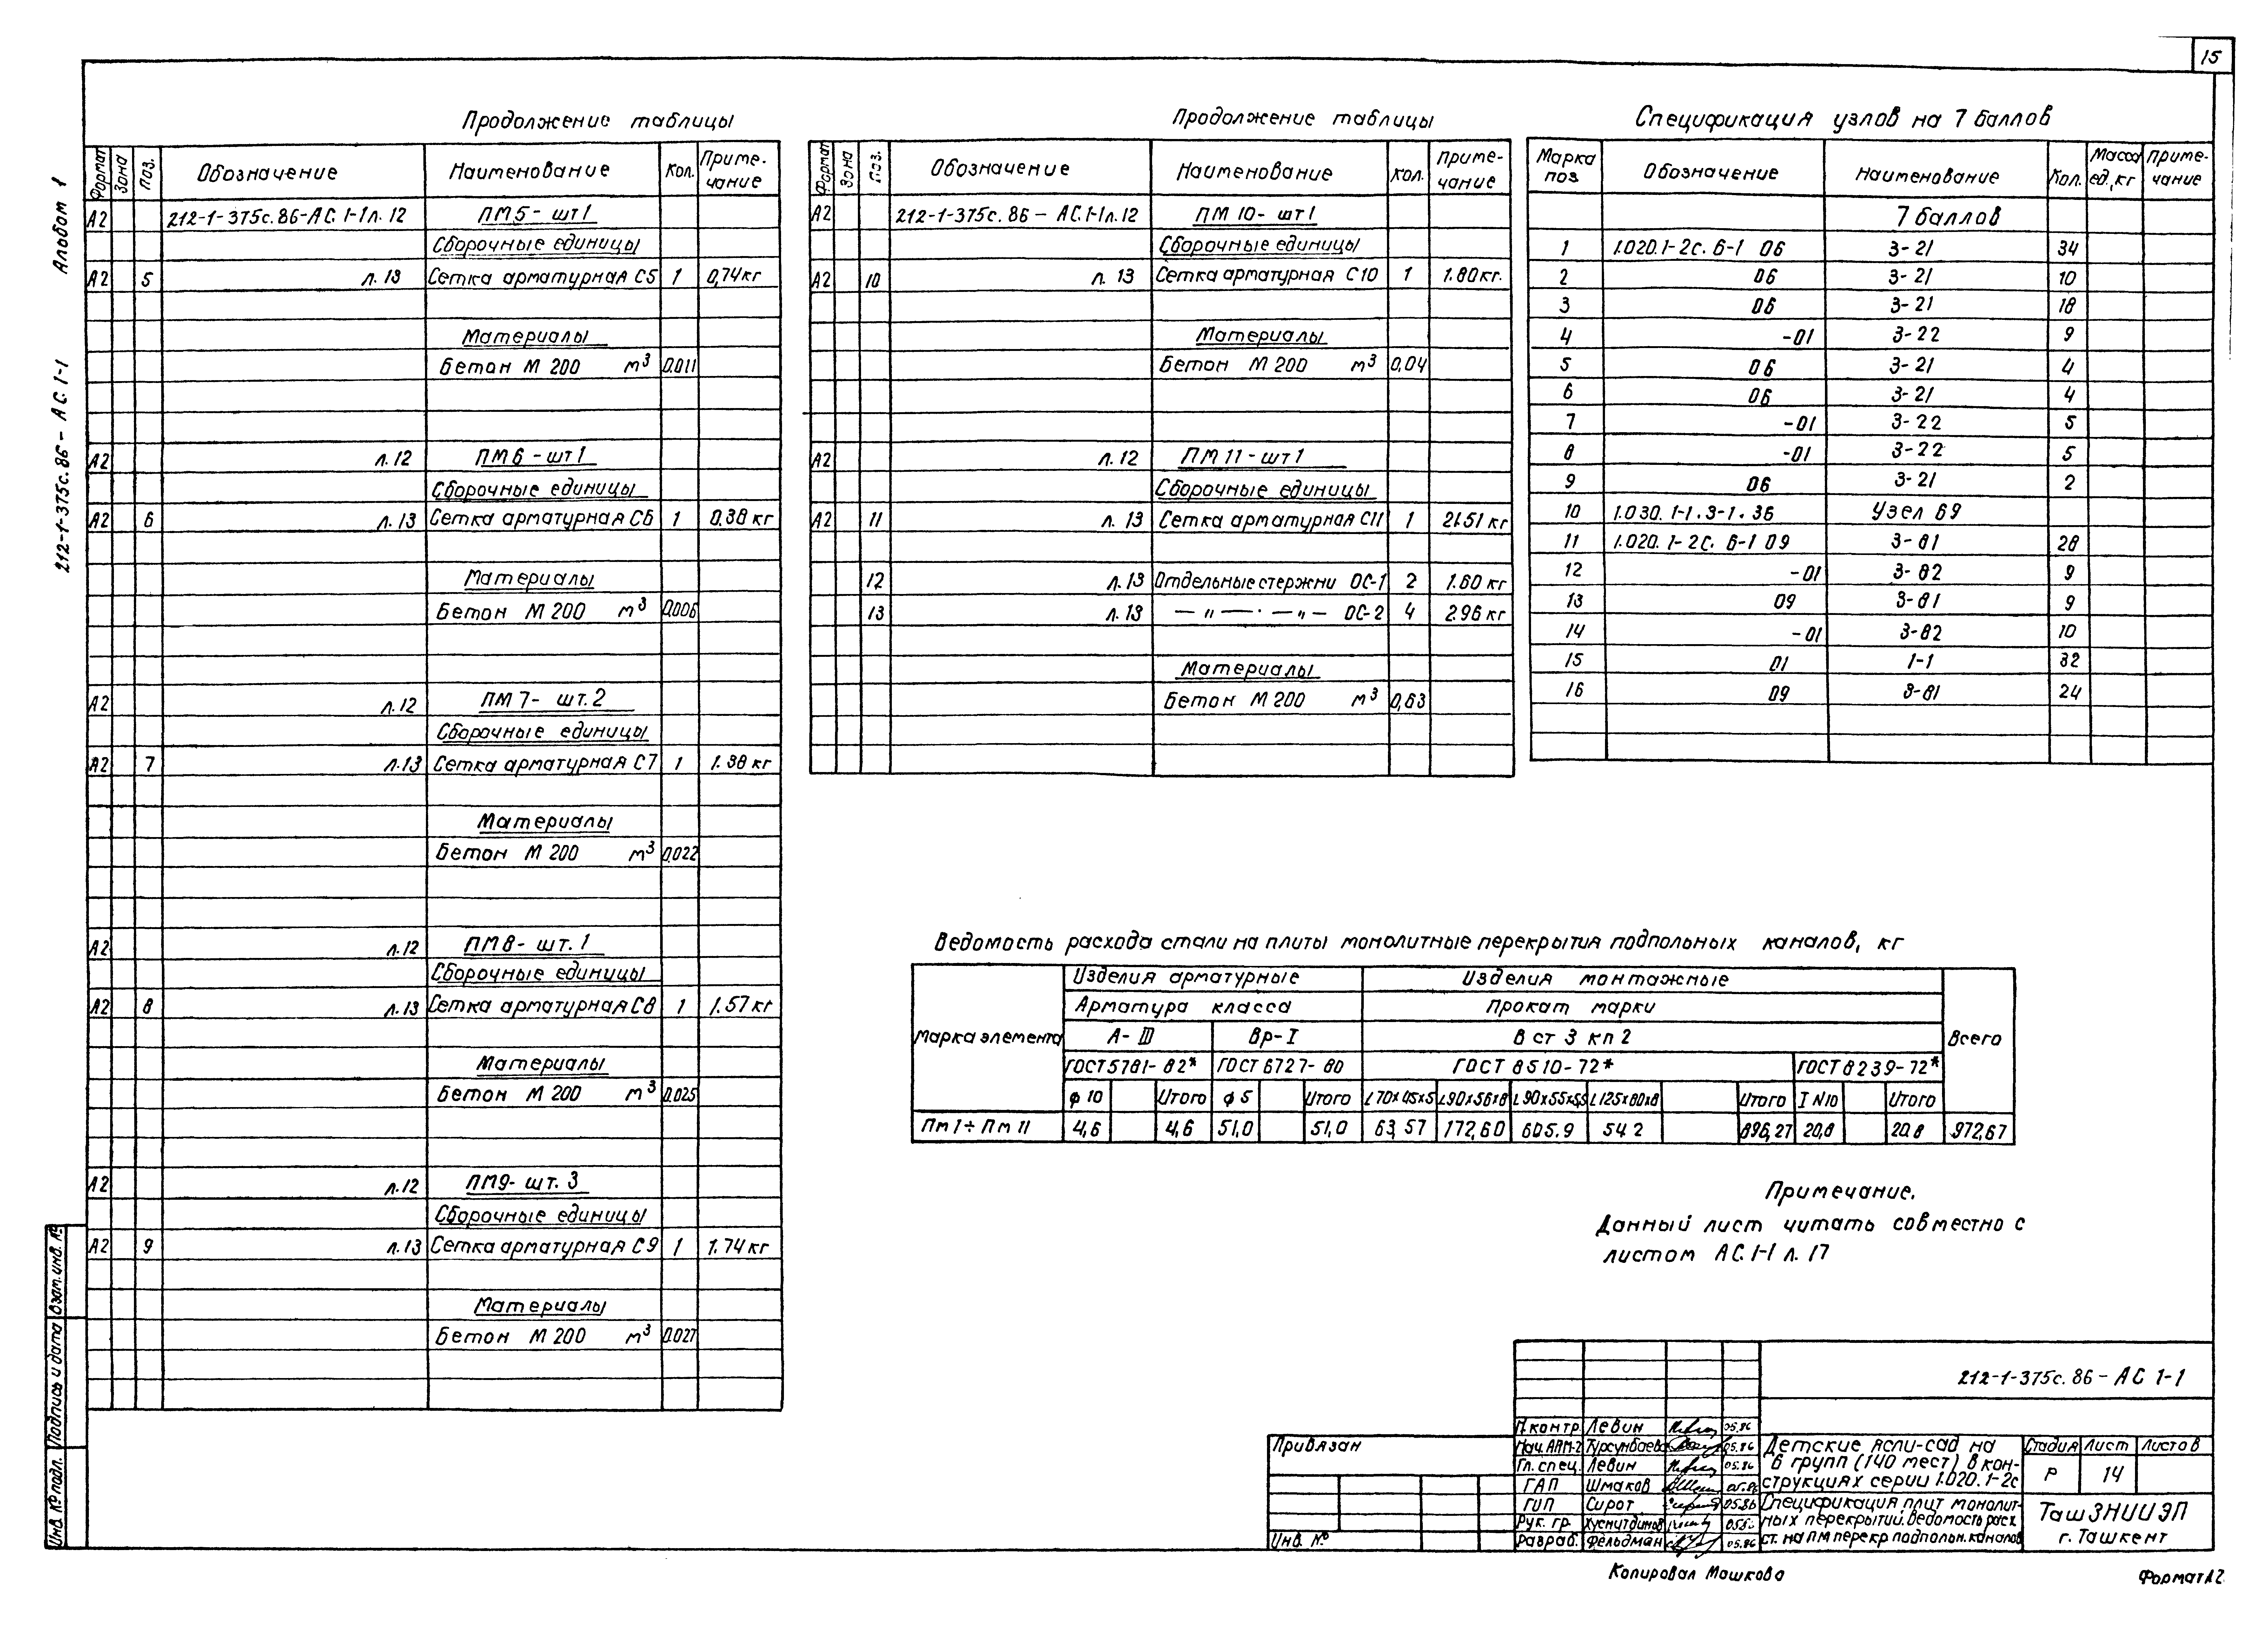 15
Альбом 1
212-1-375с.86 - АС.1-1
Продолжение таблицы
Формат Зона Поз. Обозначение Наименование Кол. Приме-чание
А2 212-1-375с.86-АС.1-1л.12 ПМ5 - шт1
Сборочные единицы
А2 5 л.13 Сетка арматурная С5 1 0,74кг
Материалы
Бетон М 200 м³ 0.011
А2 л.12 ПМ6 - шт1
Сборочные единицы
А2 6 л.13 Сетка арматурная С6 1 0.38 кг
Материалы
Бетон М 200 м³ 0.006
А2 л.12 ПМ7 - шт.2
Сборочные единицы
А2 7 л.13 Сетка арматурная С7 1 1.38 кг
Материалы
Бетон М 200 м³ 0.022
А2 л.12 ПМ8 - шт.1
Сборочные единицы
А2 8 л.13 Сетка арматурная С8 1 1.57 кг
Материалы
Бетон М 200 м³ 0.025
А2 л.12 ПМ9 - шт.3
Сборочные единицы
А2 9 л.13 Сетка арматурная С9 1 1.74 кг
Материалы
Бетон М 200 м³ 0.027
Продолжение таблицы
Формат Зона Поз. Обозначение Наименование Кол. Приме-чание
А2 212-1-375с.86 - АС.1-1л.12 ПМ 10 - шт1
Сборочные единицы
А2 10 л. 13 Сетка арматурная С10 1 1.80кг.
Материалы
Бетон М 200 м³ 0,04
А2 л.12 ПМ 11 - шт1
Сборочные единицы
А2 11 л. 13 Сетка арматурная С11 1 21.51 кг
12 л.13 Отдельные стержни ОС-1 2 1.60 кг
13 л.13 — „ — · — „ — ОС-2 4 2.96 кг
Материалы
Бетон М 200 м³ 0,63
Спецификация узлов на 7 баллов
Марка поз. Обозначение Наименование Кол. Масса ед.,кг Приме-чание
7 баллов
1 1.020.1-2с. 6-1 06 3-21 34
2 06 3-21 10
3 06 3-21 18
4 -01 3-22 9
5 06 3-21 4
6 06 3-21 4
7 -01 3-22 5
8 -01 3-22 5
9 06 3-21 2
10 1.030.1-1.3-1.36 Узел 69
11 1.020.1-2с. 6-1 09 3-81 28
12 -01 3-82 9
13 09 3-81 9
14 -01 3-82 10
15 01 1-1 32
16 09 3-81 24
Ведомость расхода стали на плиты монолитные перекрытия подпольных каналов, кг
Марка элемента Изделия арматурные Изделия монтажные Всего
Арматура класса Прокат марки
А-III Вр-I В ст 3 кп 2
ГОСТ 5781-82* ГОСТ 6727-80 ГОСТ 8510-72* ГОСТ 8239-72*
ф 10 Итого ф 5 Итого L70х45х5 L90х56х8 L90х55х5,5 L125х80х8 Итого I N10 Итого
Пм 1÷Пм 11 4,6 4,6 51,0 51,0 63,57 172,60 605.9 54 2 896,27 20,8 20.8 972,67
Примечание.
Данный лист читать совместно с
листом АС.1-1 л. 17
212-1-375с.86 - АС 1-1
Н.контр. Левин 05.86
Нач.АПМ-2 Турсунбаева 05.86
Гл. спец. Левин 05.86
ГАП Шмаков 05.86
ГИП Сирот 05.86
Рук. гр. Хуснитдинов
Разраб. Фельдман 05.86
Детские ясли-сад на
6 групп (140 мест) в кон-
струкциях серии 1.020.1-2с
Стадия Лист Листов
Р 14
Спецификация плит монолит-
ных перекрытий. Ведомость расх.
ст. на ПМ перекр подпольн. каналов
ТашЗНИИЭП
г. Ташкент
Привязан
Инв. №
Взам. инв. №
Подпись и дата
Инв. № подл.
Копировал Машкова
Формат А2